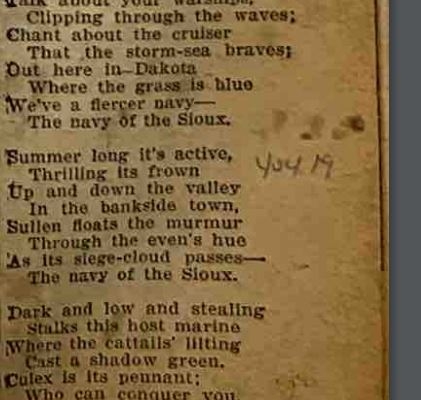 Talk about your warships,
Clipping through the waves;
Chant about the cruiser
That the storm-sea braves;
Out here in Dakota
Where the grass is blue
We've a fiercer navy—
The navy of the Sioux.
Summer long it's active,
Thrilling its frown
Up and down the valley
In the bankside town,
Sullen floats the murmur
Through the even's hue
As its siege-cloud passes—
The navy of the Sioux.
Dark and low and stealing
Stalks this host marine
Where the cattails' lilting
Cast a shadow green.
Culex is its pennant;
Who can conquer you